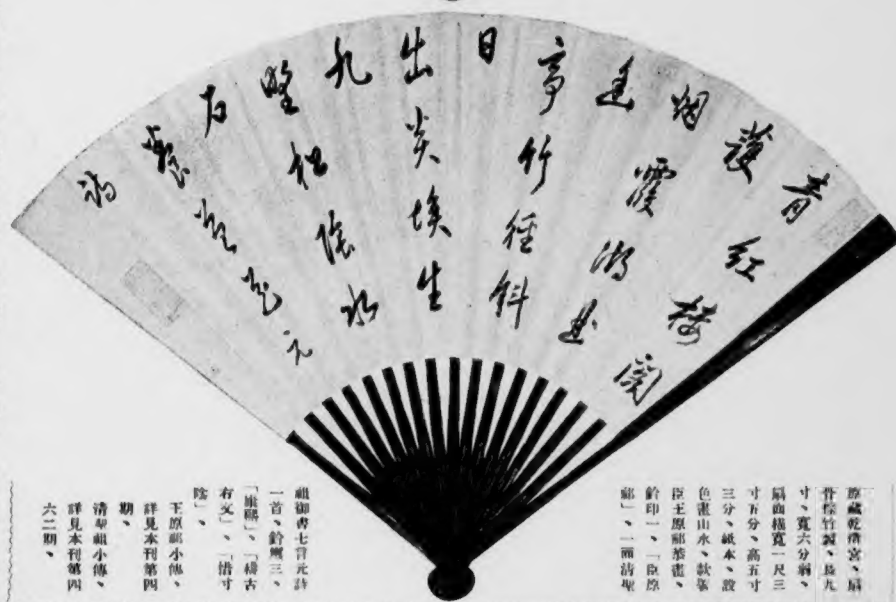 青
護紅樓閣
烟霞湖
亭竹徑斜
日
出炎埃生
九
壑松陰水
石
元
詩
原藏乾清宮、扇
骨棕竹製、長九
寸、寬六分弱、
扇面橫寬一尺三
寸五分、高五寸
三分、紙本、設
色畫山水、款署
臣王原祁恭畫、
鈐印一、「臣原
祁」、一面清聖
祖御書七言元詩
一首、鈐璽三、
「康熙」、「稽古
右文」、「惜寸
陰」、
王原祁小傳、
詳見本刊第四
期、
清聖祖小傳、
詳見本刊第四
六二期、